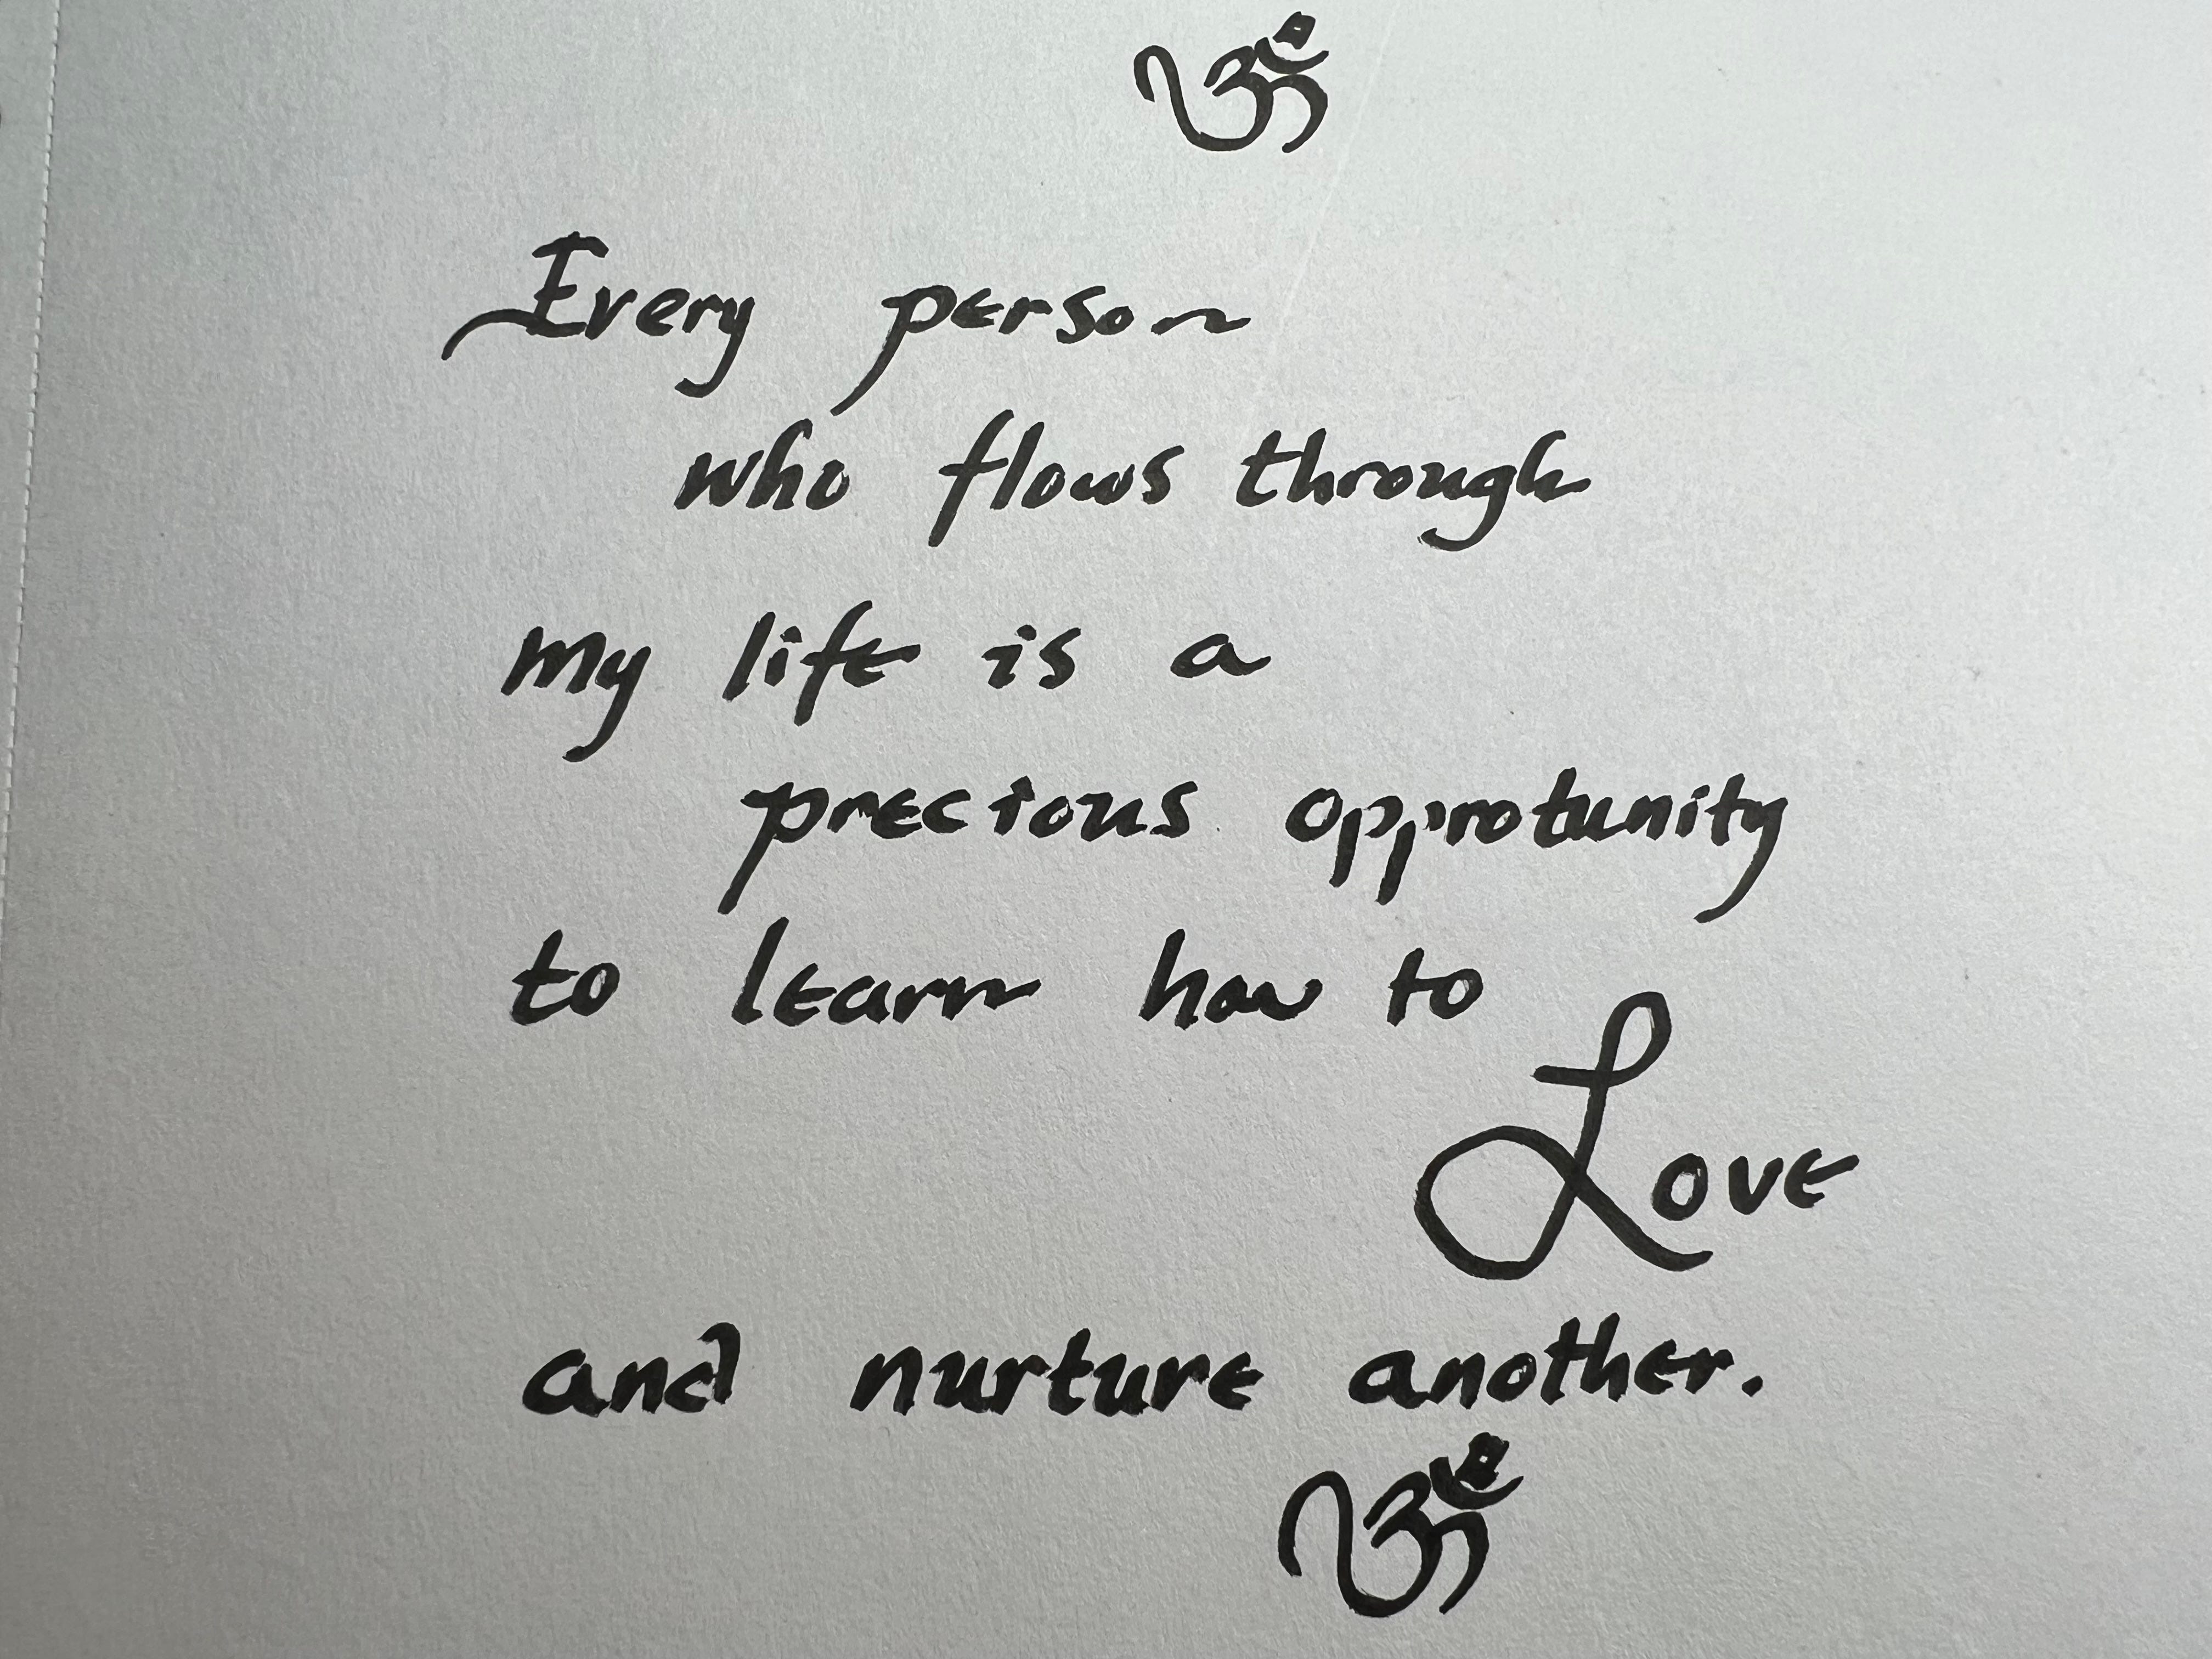 ॐ
Every person
who flows through
my life is a
precious opprotunity
to learn how to
Love
and nurture another.
ॐ